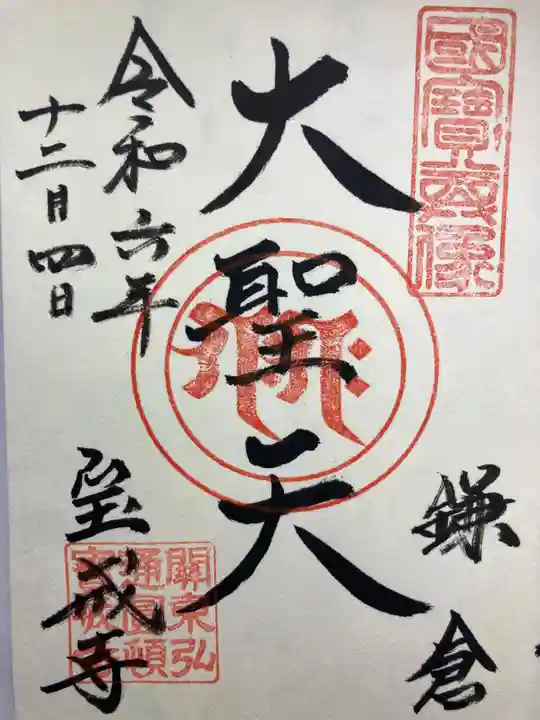 國寶尊像
鎌倉
大聖天
令和六年
十二月四日
宝戒寺
關東弘
通圓頓
寳戒寺